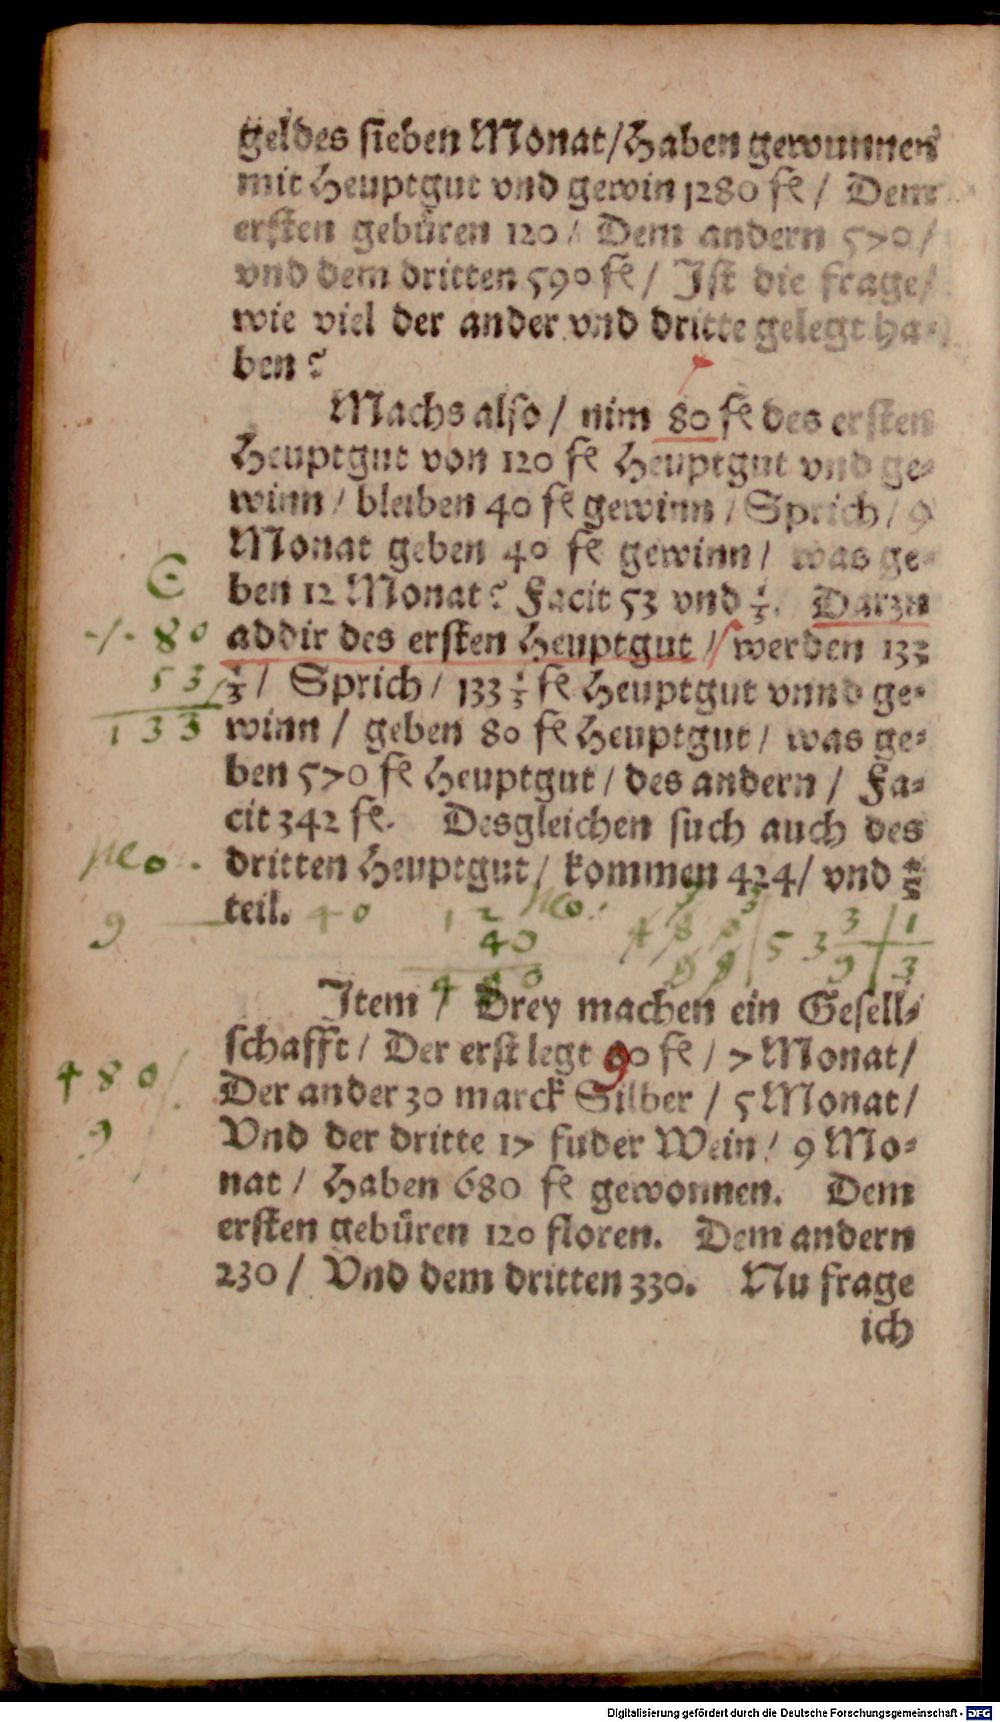 geldes sieben Monat/Haben gewunnen
mit Heuptgut vnd gewin 1280 fl / Dem
ersten gebüren 120 / Dem andern 570 /
vnd dem dritten 590 fl / Ist die frage/
wie viel der ander vnd dritte gelegt ha-
ben?
Machs also / nim 80 fl des ersten
Heuptgut von 120 fl Heuptgut vnd ge-
winn / bleiben 40 fl gewinn / Sprich / 9
Monat geben 40 fl gewinn / was ge-
ben 12 Monat? Facit 53 vnd 1/3. Darzu
addir des ersten Heuptgut / werden 133
1/3 / Sprich / 133 1/3 fl Heuptgut vnnd ge-
winn / geben 80 fl Heuptgut / was ge-
ben 570 fl Heuptgut / des andern / Fa-
cit 342 fl. Desgleichen such auch des
dritten Heuptgut / kommen 424/ vnd 2/5
teil.
80
53
133
Mo.
9 40 12 Mo.
40
480
53 3/9 1/3
480
9
Item / Drey machen ein Gesell-
schafft / Der erst legt 90 fl / 7 Monat/
Der ander 30 marck Silber / 5 Monat/
Vnd der dritte 17 fuder Wein / 9 Mo-
nat / Haben 680 fl gewonnen. Dem
ersten gebüren 120 floren. Dem andern
230 / Vnd dem dritten 330. Nu frage
ich
Digitalisierung gefördert durch die Deutsche Forschungsgemeinschaft - DFG